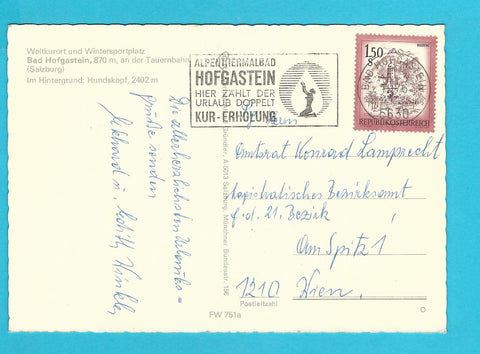 Weltkurort und Wintersportplatz
Bad Hofgastein, 870 m, an der Tauernbahn
(Salzburg)
Im Hintergrund: Hundskopf, 2402 m
ALPENTHERMALBAD
HOFGASTEIN
HIER ZÄHLT DER
URLAUB DOPPELT
KUR-ERHOLUNG
1.50
S
REPUBLIK ÖSTERREICH
5630
Die allerherzlichsten Urlaubs=
grüße senden
Ekkhard u. Edith Winkler
Gründler, A-5013 Salzburg, Münchner Bundesstr. 156
Herrn
Amtsrat Konrad Lamprecht
Magistratisches Bezirksamt
f. d. 21. Bezirk
Am Spitz 1
1210 Wien
Postleitzahl
FW 751a